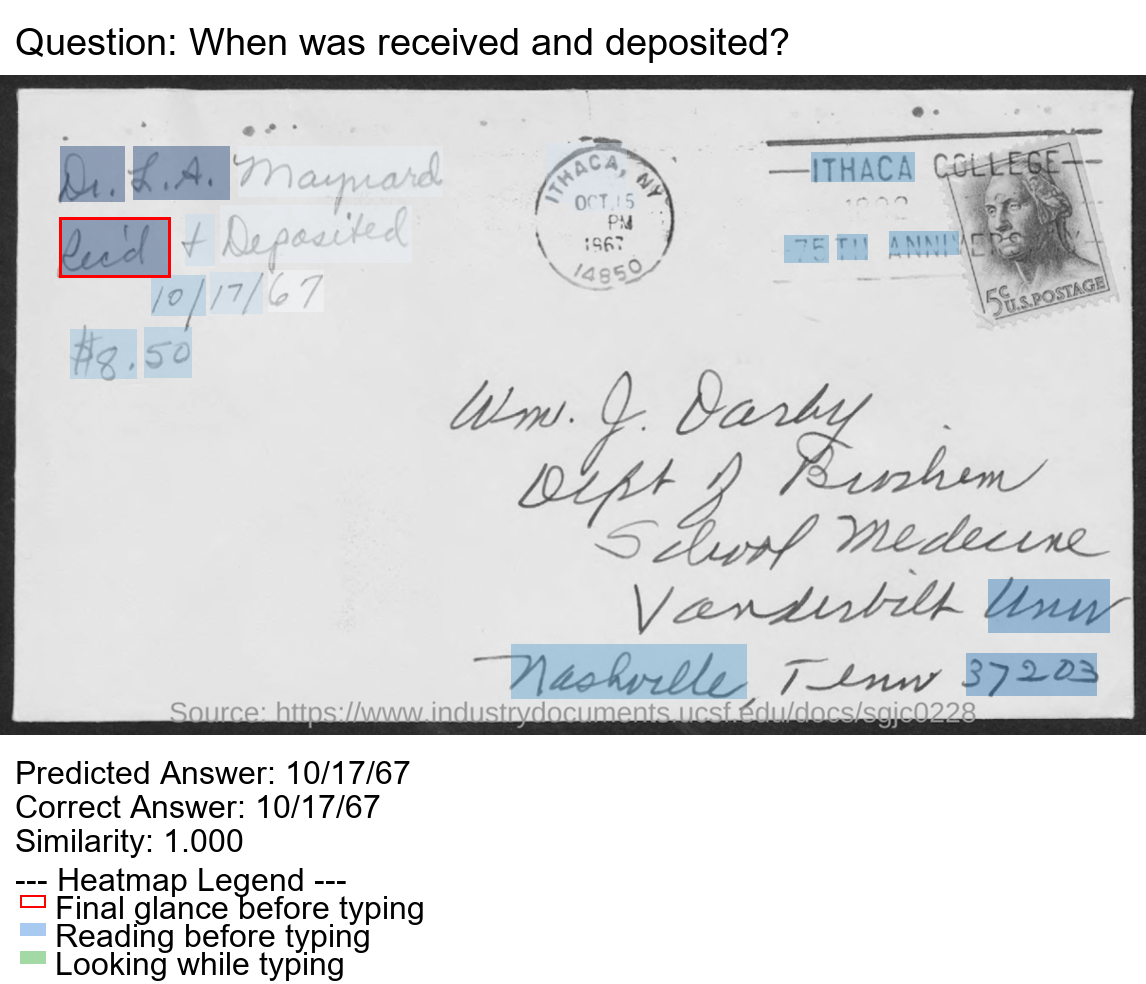 Question: When was received and deposited?
Dr. L.A. Maynard
Rec'd + Deposited
10/17/67
$8.50
ITHACA, NY
OCT 15
PM
1967
14850
ITHACA COLLEGE
75TH ANNIVERS
5c U.S.POSTAGE
Wm. J. Darby
Dept of Biochem
School Medecine
Vanderbilt Univ
Nashville, Tenn 37203
Source: https://www.industrydocuments.ucsf.edu/docs/sgjc0228
Predicted Answer: 10/17/67
Correct Answer: 10/17/67
Similarity: 1.000
--- Heatmap Legend ---
Final glance before typing
Reading before typing
Looking while typing